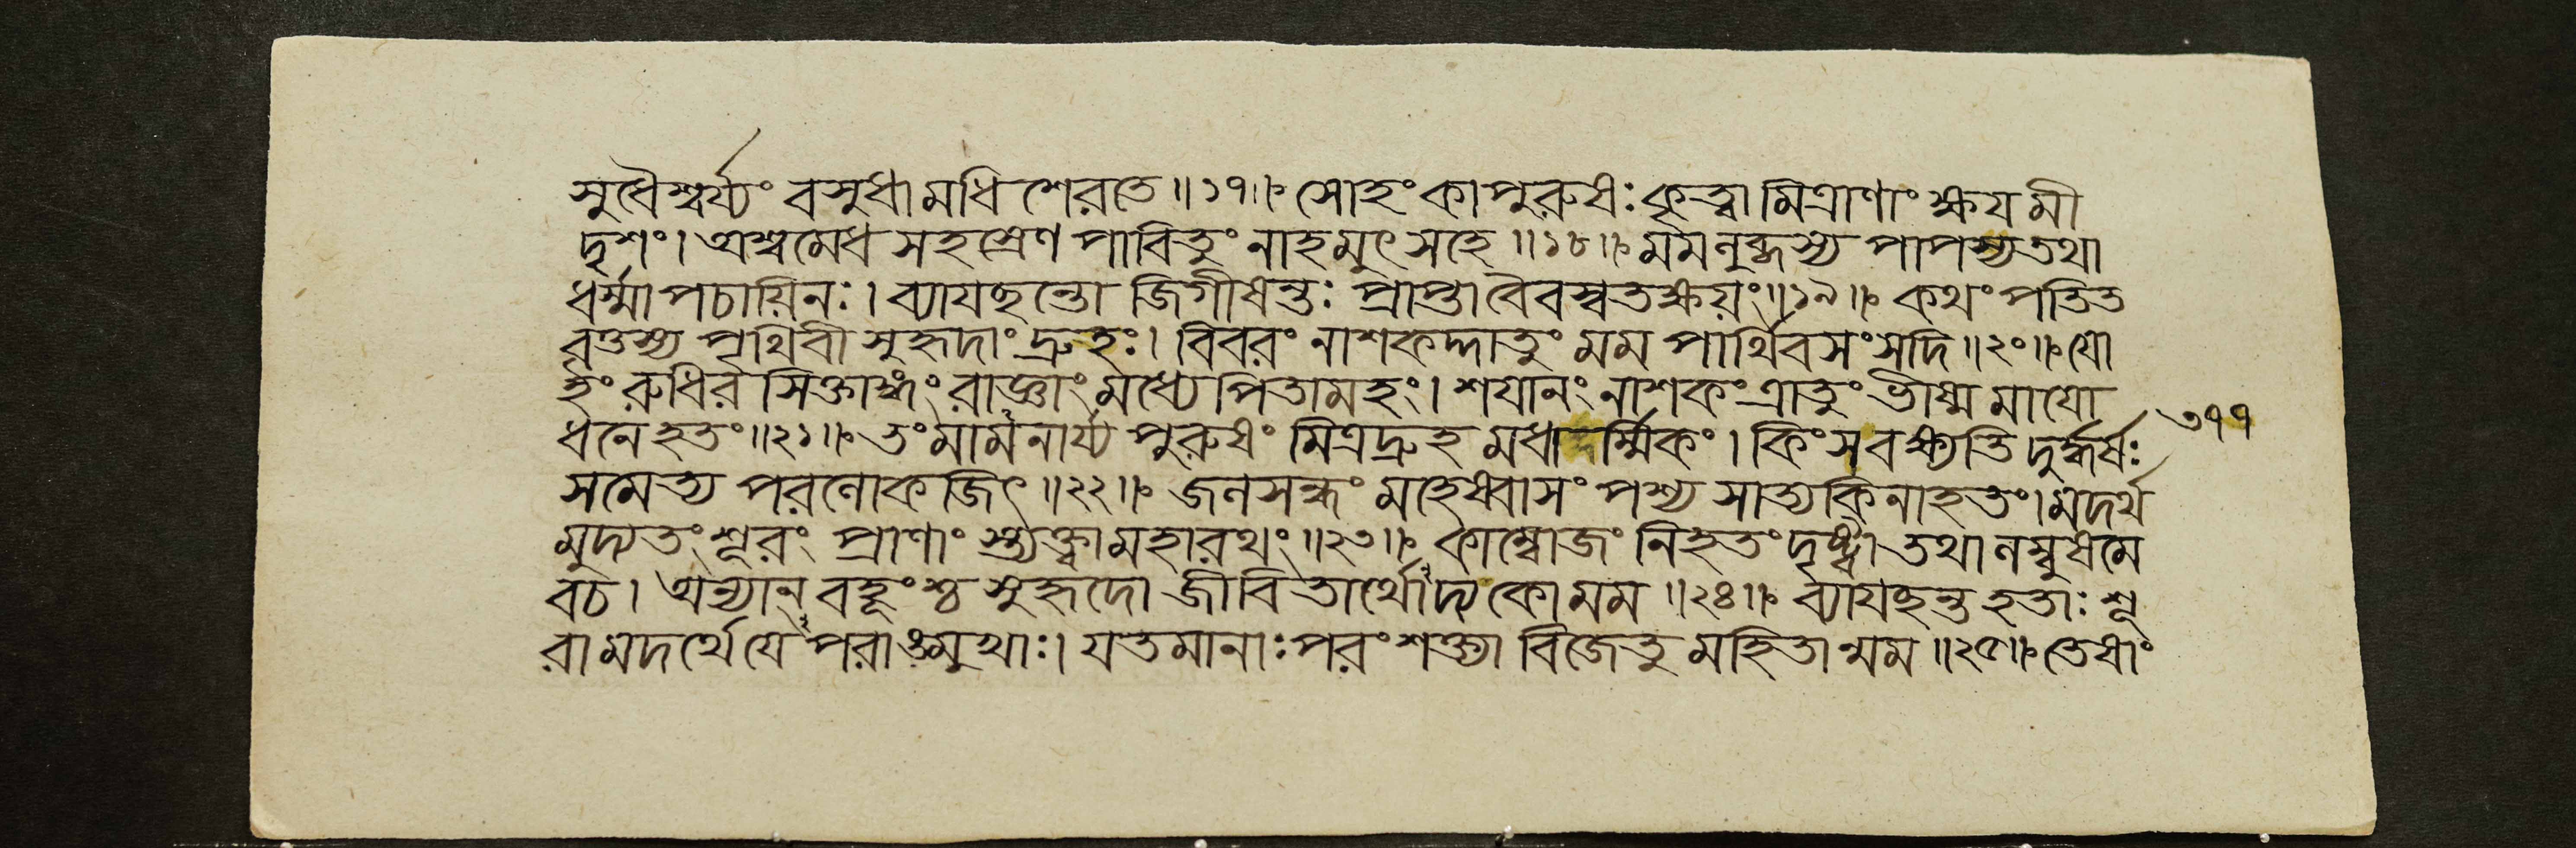 সুধৈশ্বর্য্যং বসুধামধিশেরতে ॥১৭॥ সোহং কাপুরুষঃ কৃত্বা মিত্রাণাং ক্ষয়মী
দৃশং। অশ্বমেধসহস্রেণ পাবিতুং নাহমুৎসহে ॥১৮॥ মমনুব্ধস্য পাপস্য তথা
ধর্ম্মাপচায়িনঃ। ব্যাযচ্ছন্তো জিগীষন্তঃ প্রাপ্তা বৈবস্বতক্ষয়ং ॥১৯॥ কথং পতিত
বৃত্তস্য পৃথিবী সুহৃদাং দ্রুহঃ। বিবরং নাশকদ্দাতুং মম পার্থিবসংসদি ॥২০॥ যো
হং রুধিরসিক্তাঙ্গং রাজ্ঞাং মধ্যে পিতামহং। শযানং নাশকং ত্রাতুং ভীষ্মমাযো
ধনে হতং ॥২১॥ তং মামনার্য্যপুরুষং মিত্রদ্রুহমধার্ম্মিকং। কিং স বক্ষ্যতি দুর্দ্ধর্ষঃ
সমেত্য পরলোকজিৎ ॥২২॥ জলসন্ধং মহেষ্বাসং পশ্য সাত্যকিনা হতং। মদর্থ
মুদ্যতং শূরং প্রাণাংস্ত্যক্ত্বা মহারথং ॥২৩॥ কাম্বোজং নিহতং দৃষ্ট্বা তথালম্বুষমে
বচ। অন্যান্ বহূংশ্চ সুহৃদো জীবিতার্থোদ্য কো মম ॥২৪॥ ব্যাযচ্ছন্ত হতাঃ শূ
রা মদর্থে যে পরাঙ্মুখাঃ। যতমানাঃ পরং শক্ত্যা বিজেতুমহিতান্মম ॥২৫॥ তেষাং
৩৭৭